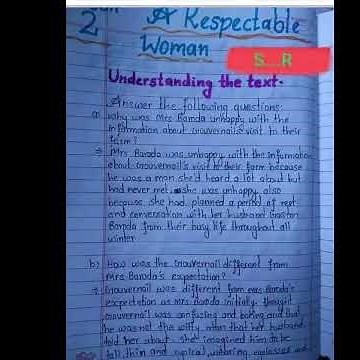 2 A Respectable
Woman
S....R
Understanding the text-
Answer the following questions:
a) Why was Mrs Baroda unhappy with the
information about Gouvernail's visit to their
farm?
→ Mrs Baroda was unhappy with the information
about Gouvernail's visit to their farm because
he was a man she'd heard a lot about but
had never met. she was unhappy also
because she had planned a period of rest
and conversation with her husband Gaston
Baroda from their busy life throughout all
winter.
b) How was the Gouvernail different from
Mrs Baroda's expectation?
→ Gouvernail was different from mrs Baroda's
expectation as Mrs Baroda initially thought
Gouvernail was confusing and boring and that
he was not the witty man that her husband
told her about. she imagined him to be
tall, thin and cynical wearing eyeglasses and